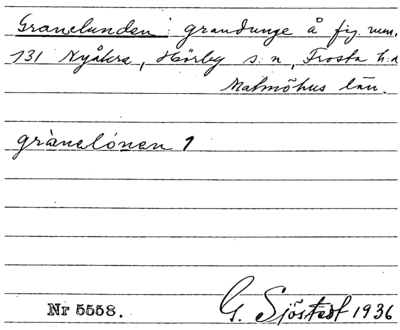 Granelunden: grandunge å fig. num.
131 Nyåkra, Hörby s:n, Frosta h:d
Malmöhus län.
grànelónen 1
Nr 5558. G. Sjöstedt 1936